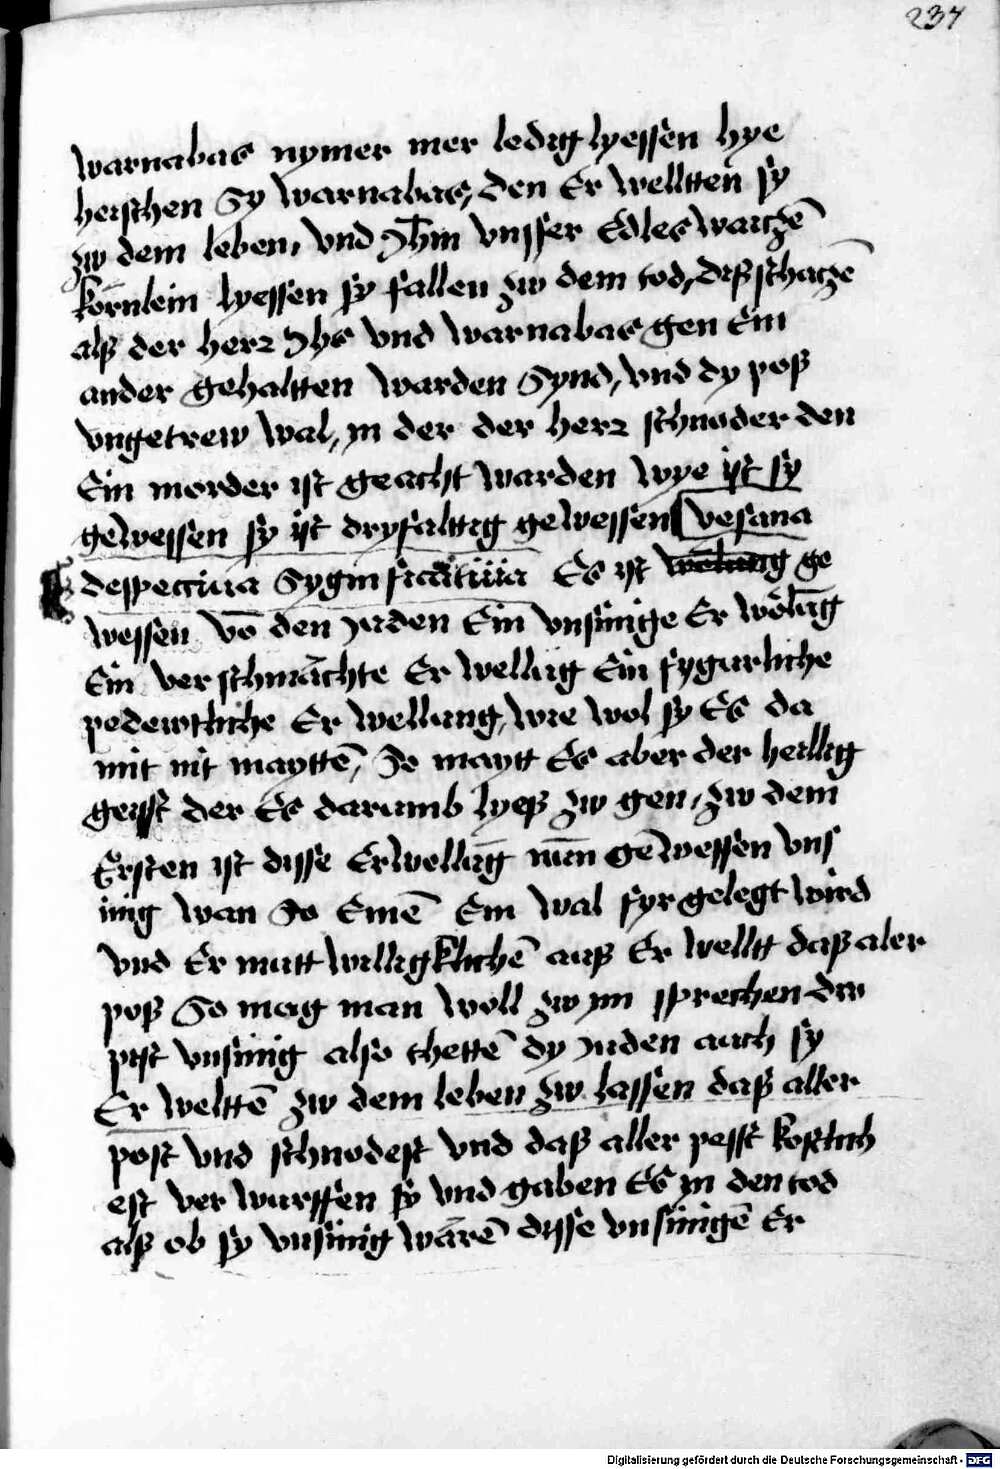 237
warnabas nymer mer ledig lyessen hye
heischen Sy warnabas, den Er wellten sy
zw dem leben, vnd Jhm vnsser Edles waiczē
körnlein lyessen sy fallen zw dem tod, diß schacze
alß der herr Jhs vnd warnabas gen Ein
ander gehaltten warden Synd, vnd dy poß
vngetrew wal, in der der herr schnoder den
Ein morder ist geacht warden wye ist sy
gewessen sy ist dryfalttig gewessen vesana
despectiua Sygnificatiua Es ist ge
wessen vō den Juden Ein vnsinige Er wölūg
Ein verschmächte Er wellūg Ein fygurliche
pedewtliche Er wellung, wie wol sy Es da
mit nit mayttē, So maytt Es aber der heillig
geist der Es darumb lyeß zw gen, zw dem
Ersten ist disse Erwellūg nun gewessen vns
inig wan So Einē Ein wal fyrgelegt wird
vnd Er mutt willigklichē auß Er wellt daß aler
poß So mag man woll zw im sprechen dw
pist vnsinig also thettē dy Juden auch sy
Er welttē zw dem leben zw lassen daß aller
post vnd schnodest vnd daß aller pesst kostlich
est ver wurffen sy vnd gaben Es in den tod
alß ob sy vnsinig wārē disse vnsinigē Er
Digitalisierung gefördert durch die Deutsche Forschungsgemeinschaft - DFG